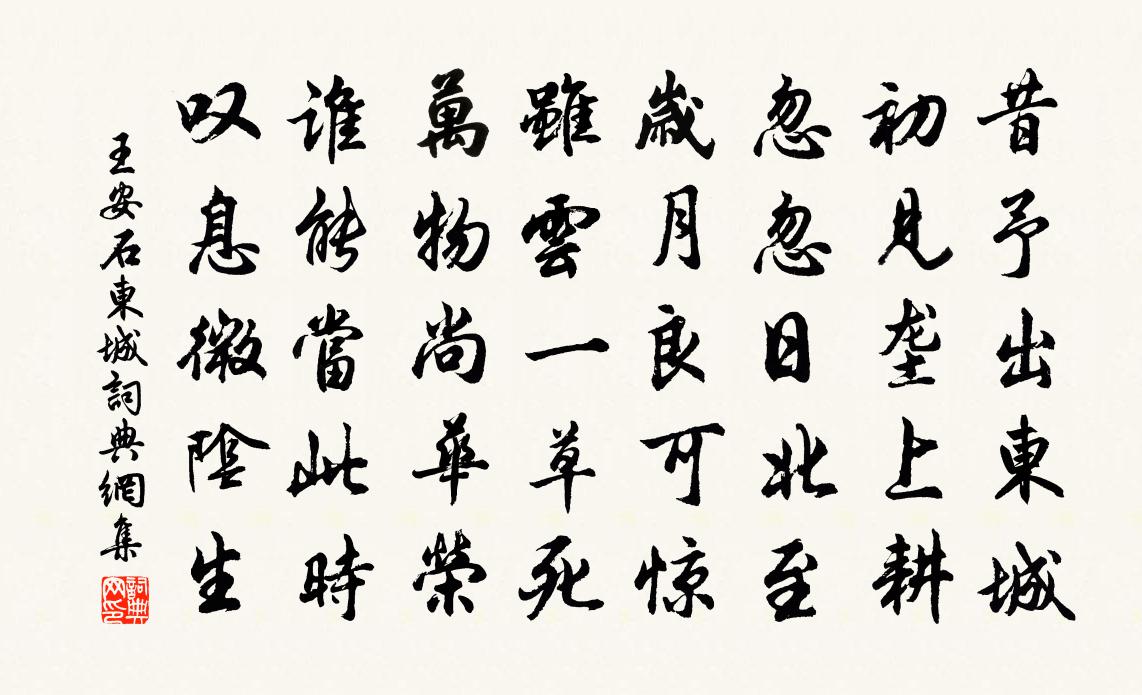 昔予出東城
初見垄上耕
忽忽日北至
歲月良可惊
雖雲一草死
萬物尚華榮
誰能當此時
叹息微陰生
王安石東城詞典網集
詞典网印